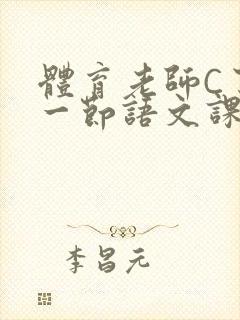 體育老師C
一節語文課
李昌元